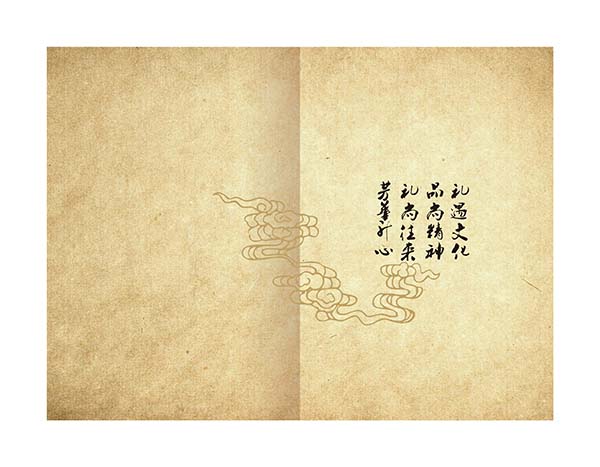 礼遇文化
品尚精神
礼尚往来
芳华升心